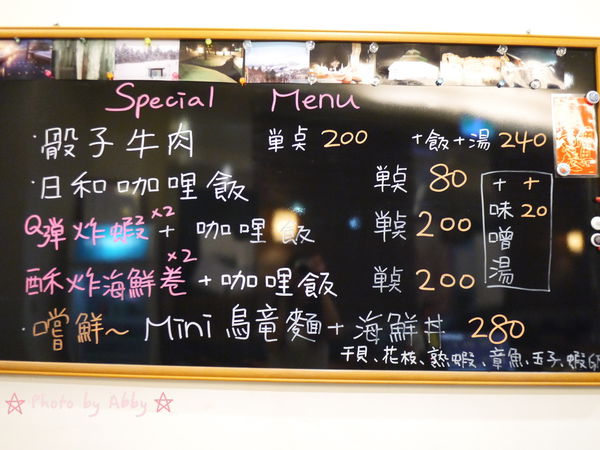 Special Menu
·骰子牛肉 単桌 200 +飯+湯 240
·日和咖哩飯 単桌 80
Q彈炸蝦x2 + 咖哩飯 単桌 200
酥炸海鮮卷x2 + 咖哩飯 単桌 200
+ +
味 20
噌
湯
·嚐鮮~ Mini 烏竜麵 + 海鮮丼 280
干貝、花枝、熟蝦、章魚、玉子、蝦卵
☆ Photo by Abby ☆